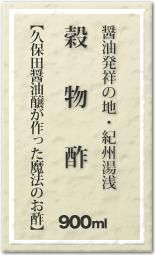 醤油発祥の地・紀州湯浅
穀物酢
【久保田醤油醸が作った魔法のお酢】
900ml